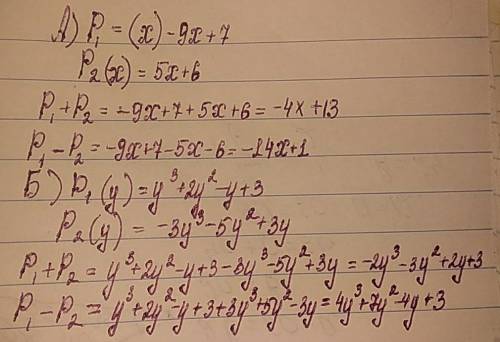 А) P₁ = (x) -9x+7
P₂(x) = 5x+6
P₁+P₂ = -9x+7+5x+6 = -4x+13
P₁-P₂ = -9x+7-5x-6 = -14x+1
Б) P₁(y) = y³+2y²-y+3
P₂(y) = -3y³-5y²+3y
P₁+P₂ = y³+2y²-y+3-3y³-5y²+3y = -2y³-3y²+2y+3
P₁-P₂ = y³+2y²-y+3+3y³+5y²-3y = 4y³+7y²-4y+3